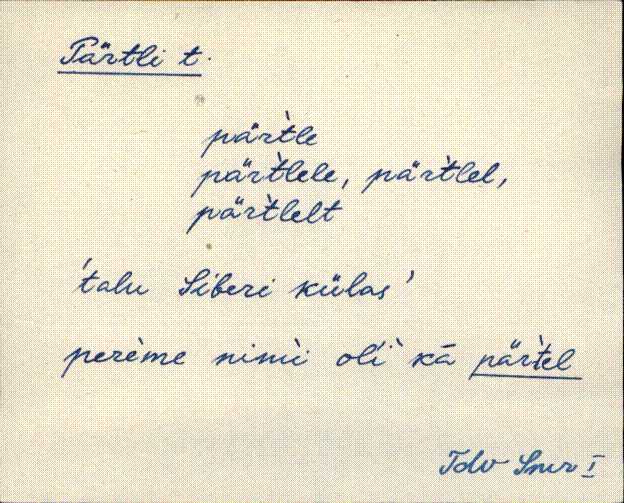 Pärtli t.
pär̀tle
pär̀tlele, pär̀tlel,
pär̀tlelt
'talu Siberi külas'
perème nimì olí kā pär̀tel